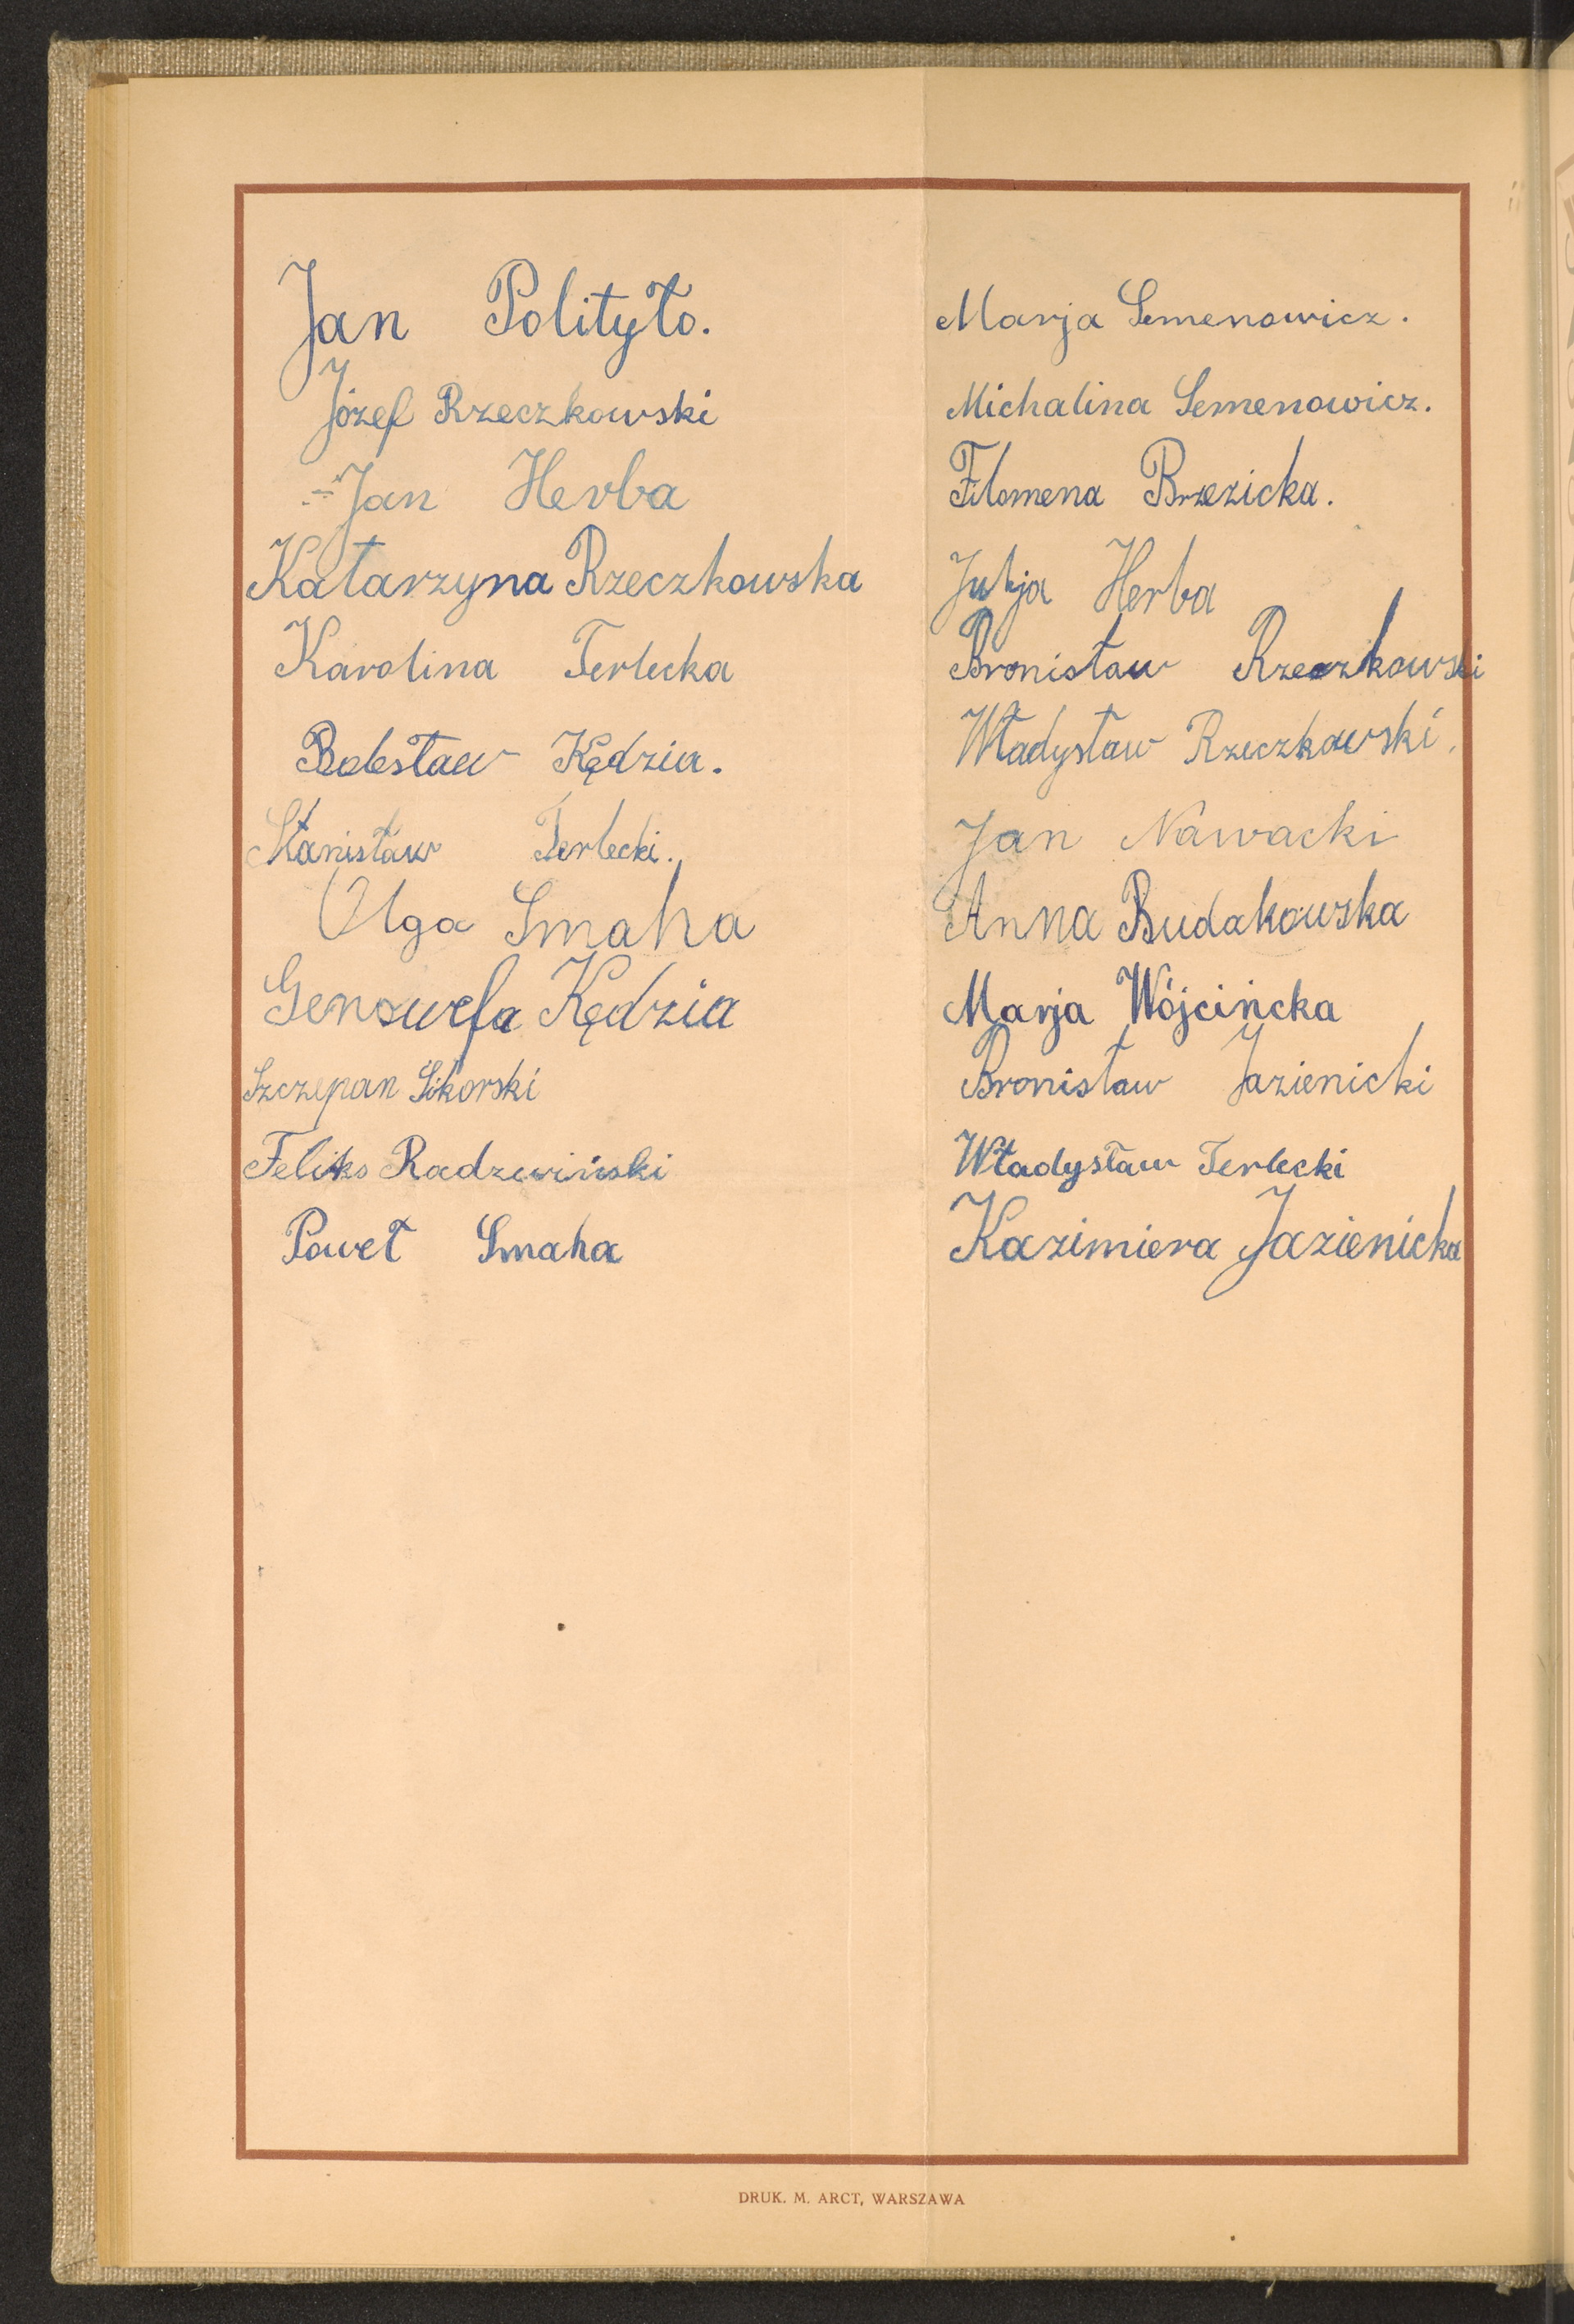 Jan Polityło.
Józef Rzeczkowski
Jan Herba
Katarzyna Rzeczkowska
Karolina Terlecka
Bolesław Kędzia.
Stanisław Terlecki.
Olga Smaha
Genowefa Kędzia
Szczepan Sikorski
Feliks Radzewiński
Paweł Smaha
Marja Semenowicz.
Michalina Semenowicz.
Filomena Brzezicka.
Julja Herba
Bronisław Rzeczkowski
Władysław Rzeczkowski.
Jan Nawacki
Anna Budakowska
Marja Wójcińcka
Bronisław Jazienicki
Władysław Terlecki
Kazimiera Jazienicka
DRUK. M. ARCT, WARSZAWA